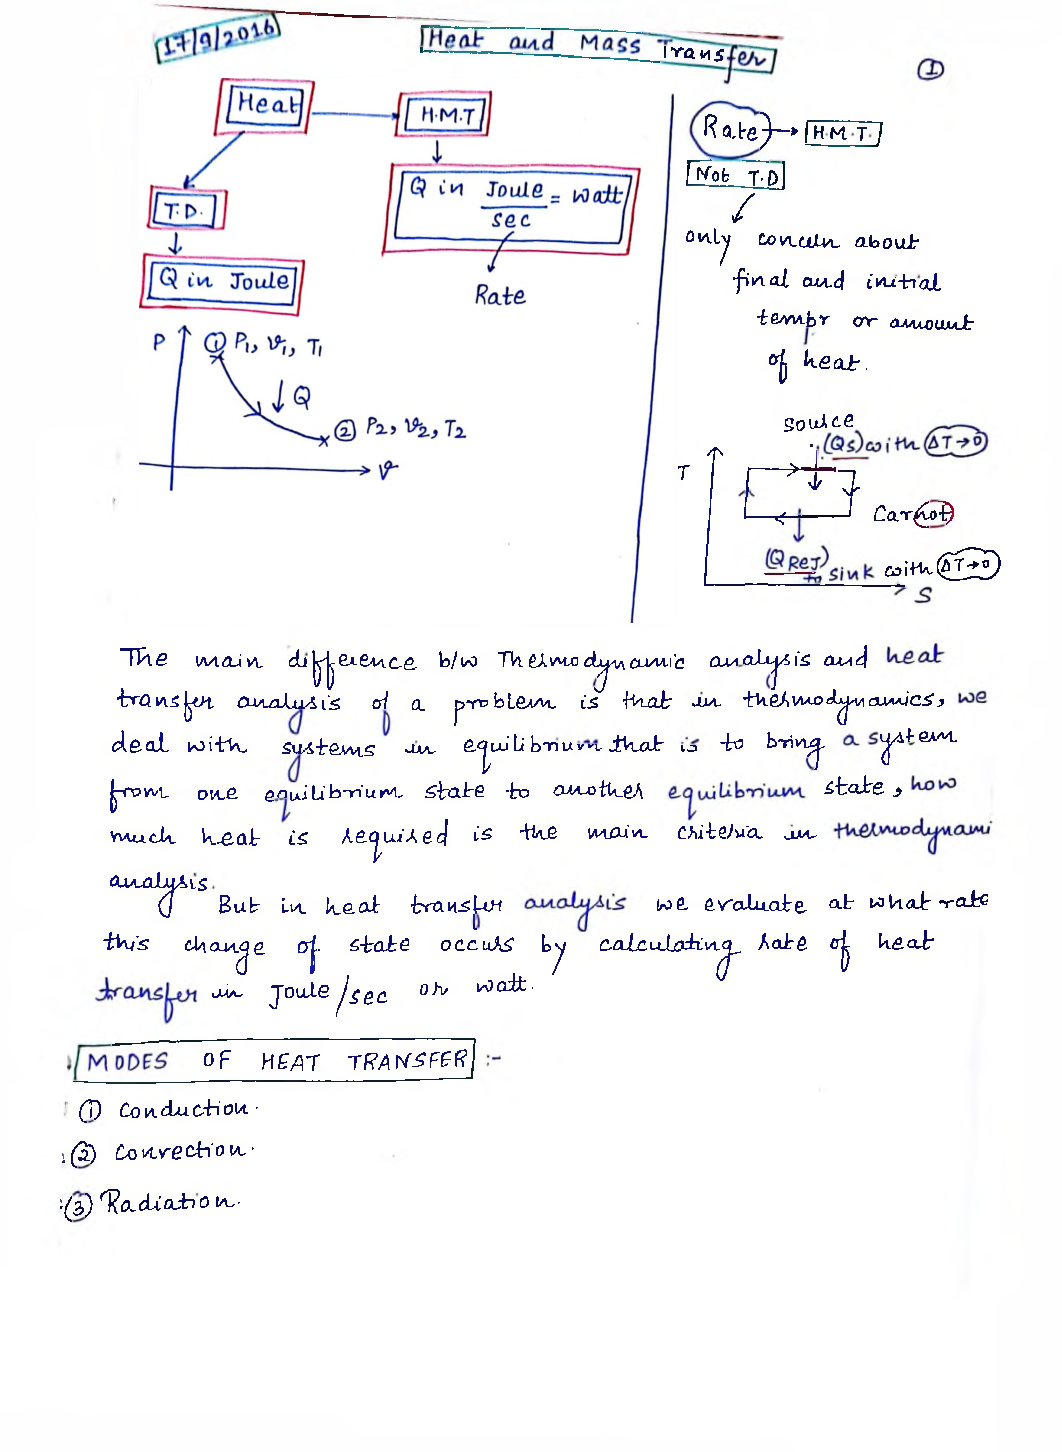 17/9/2016
Heat and Mass Transfer
1
Heat
H.M.T
T.D.
Q in Joule/sec = watt
Rate
Q in Joule
P
1 P1, v1, T1
Q
2 P2, v2, T2
v
Rate → H.M.T.
Not T.D
only concern about
final and initial
tempr or amount
of heat.
source
(Qs) with ΔT→0
T
Carnot
(QRej)
to sink with ΔT→0
S
The main difference b/w Thermodynamic analysis and heat
transfer analysis of a problem is that in thermodynamics, we
deal with systems in equilibrium that is to bring a system
from one equilibrium state to another equilibrium state, how
much heat is required is the main criteria in thermodynami
analysis.
But in heat transfer analysis we evaluate at what rate
this change of state occurs by calculating rate of heat
transfer in Joule/sec or watt.
MODES OF HEAT TRANSFER :-
1 Conduction.
2 Convection.
3 Radiation.